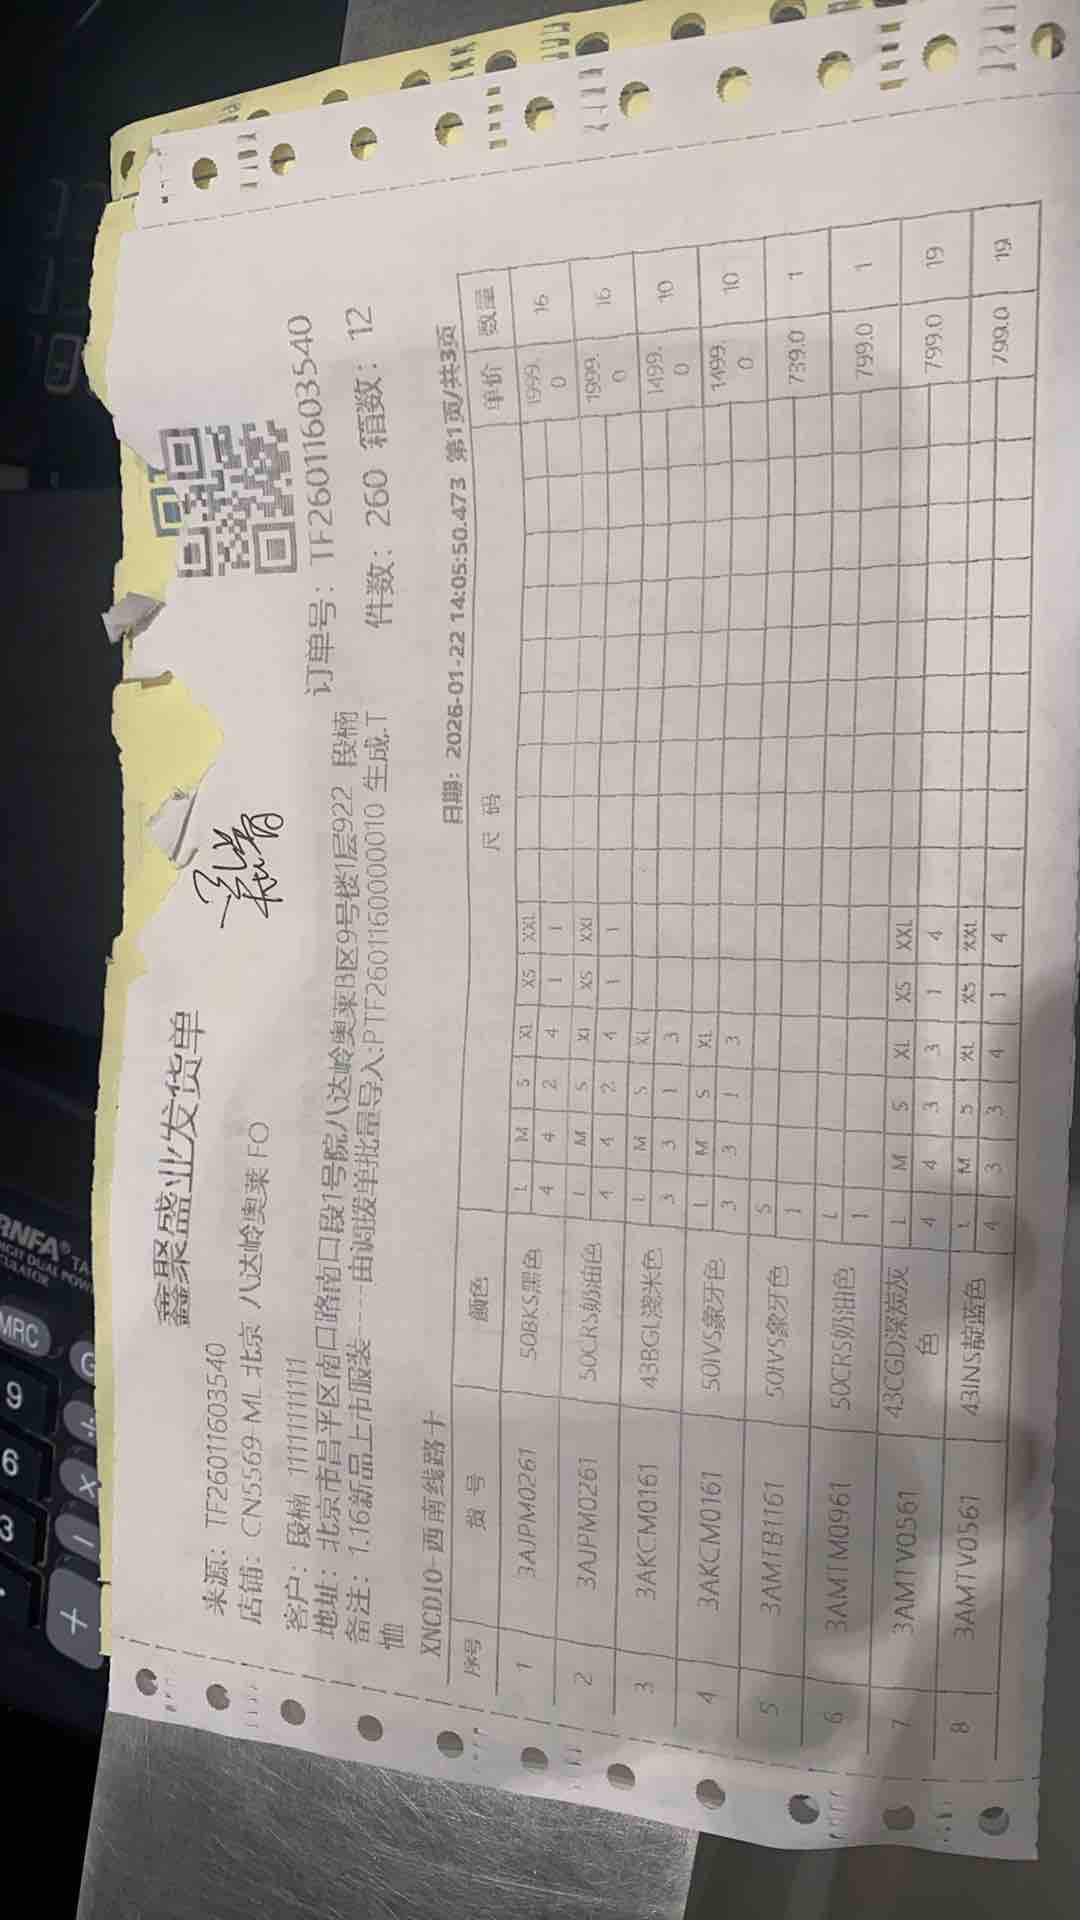 鑫聚盛业发货单
来源：TF26011603540
店铺：CN5569-ML 北京 八达岭奥莱 FO
客户：段楠 11111111111
订单号：TF26011603540
地址：北京市昌平区南口路南口段1号院八达岭奥莱B区9号楼1层922 段楠
件数：260 箱数：12
备注：1.16新品上市服装----由调拨单批量导入:PTF26011600010 生成.T
恤
XNCD10-西南线路卡
日期：2026-01-22 14:05:50.473 第1页/共3页
序号 货 号 颜色 尺 码 单价 数量
1 3AJPM0261 50BKS黑色 L M S XL XS XXL 1999.0 16
4 4 2 4 1 1
2 3AJPM0261 50CRS奶油色 L M S XL XS XXL 1999.0 16
4 4 2 4 1 1
3 3AKCM0161 43BGL浅米色 L M S XL 1499.0 10
3 3 1 3
4 3AKCM0161 50IVS象牙色 L M S XL 1499.0 10
3 3 1 3
5 3AMTB1161 50IVS象牙色 S 739.0 1
1
6 3AMTM0961 50CRS奶油色 L 799.0 1
1
7 3AMTV0561 43CGD深炭灰色 L M S XL XS XXL 799.0 19
4 4 3 3 1 4
8 3AMTV0561 43INS靛蓝色 L M S XL XS XXL 799.0 19
4 3 3 4 1 4
MRC
9
6
3